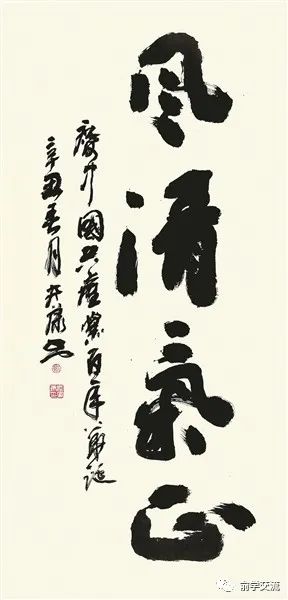 風清氣正
慶中國共產黨百年華誕
辛丑春月
学交流